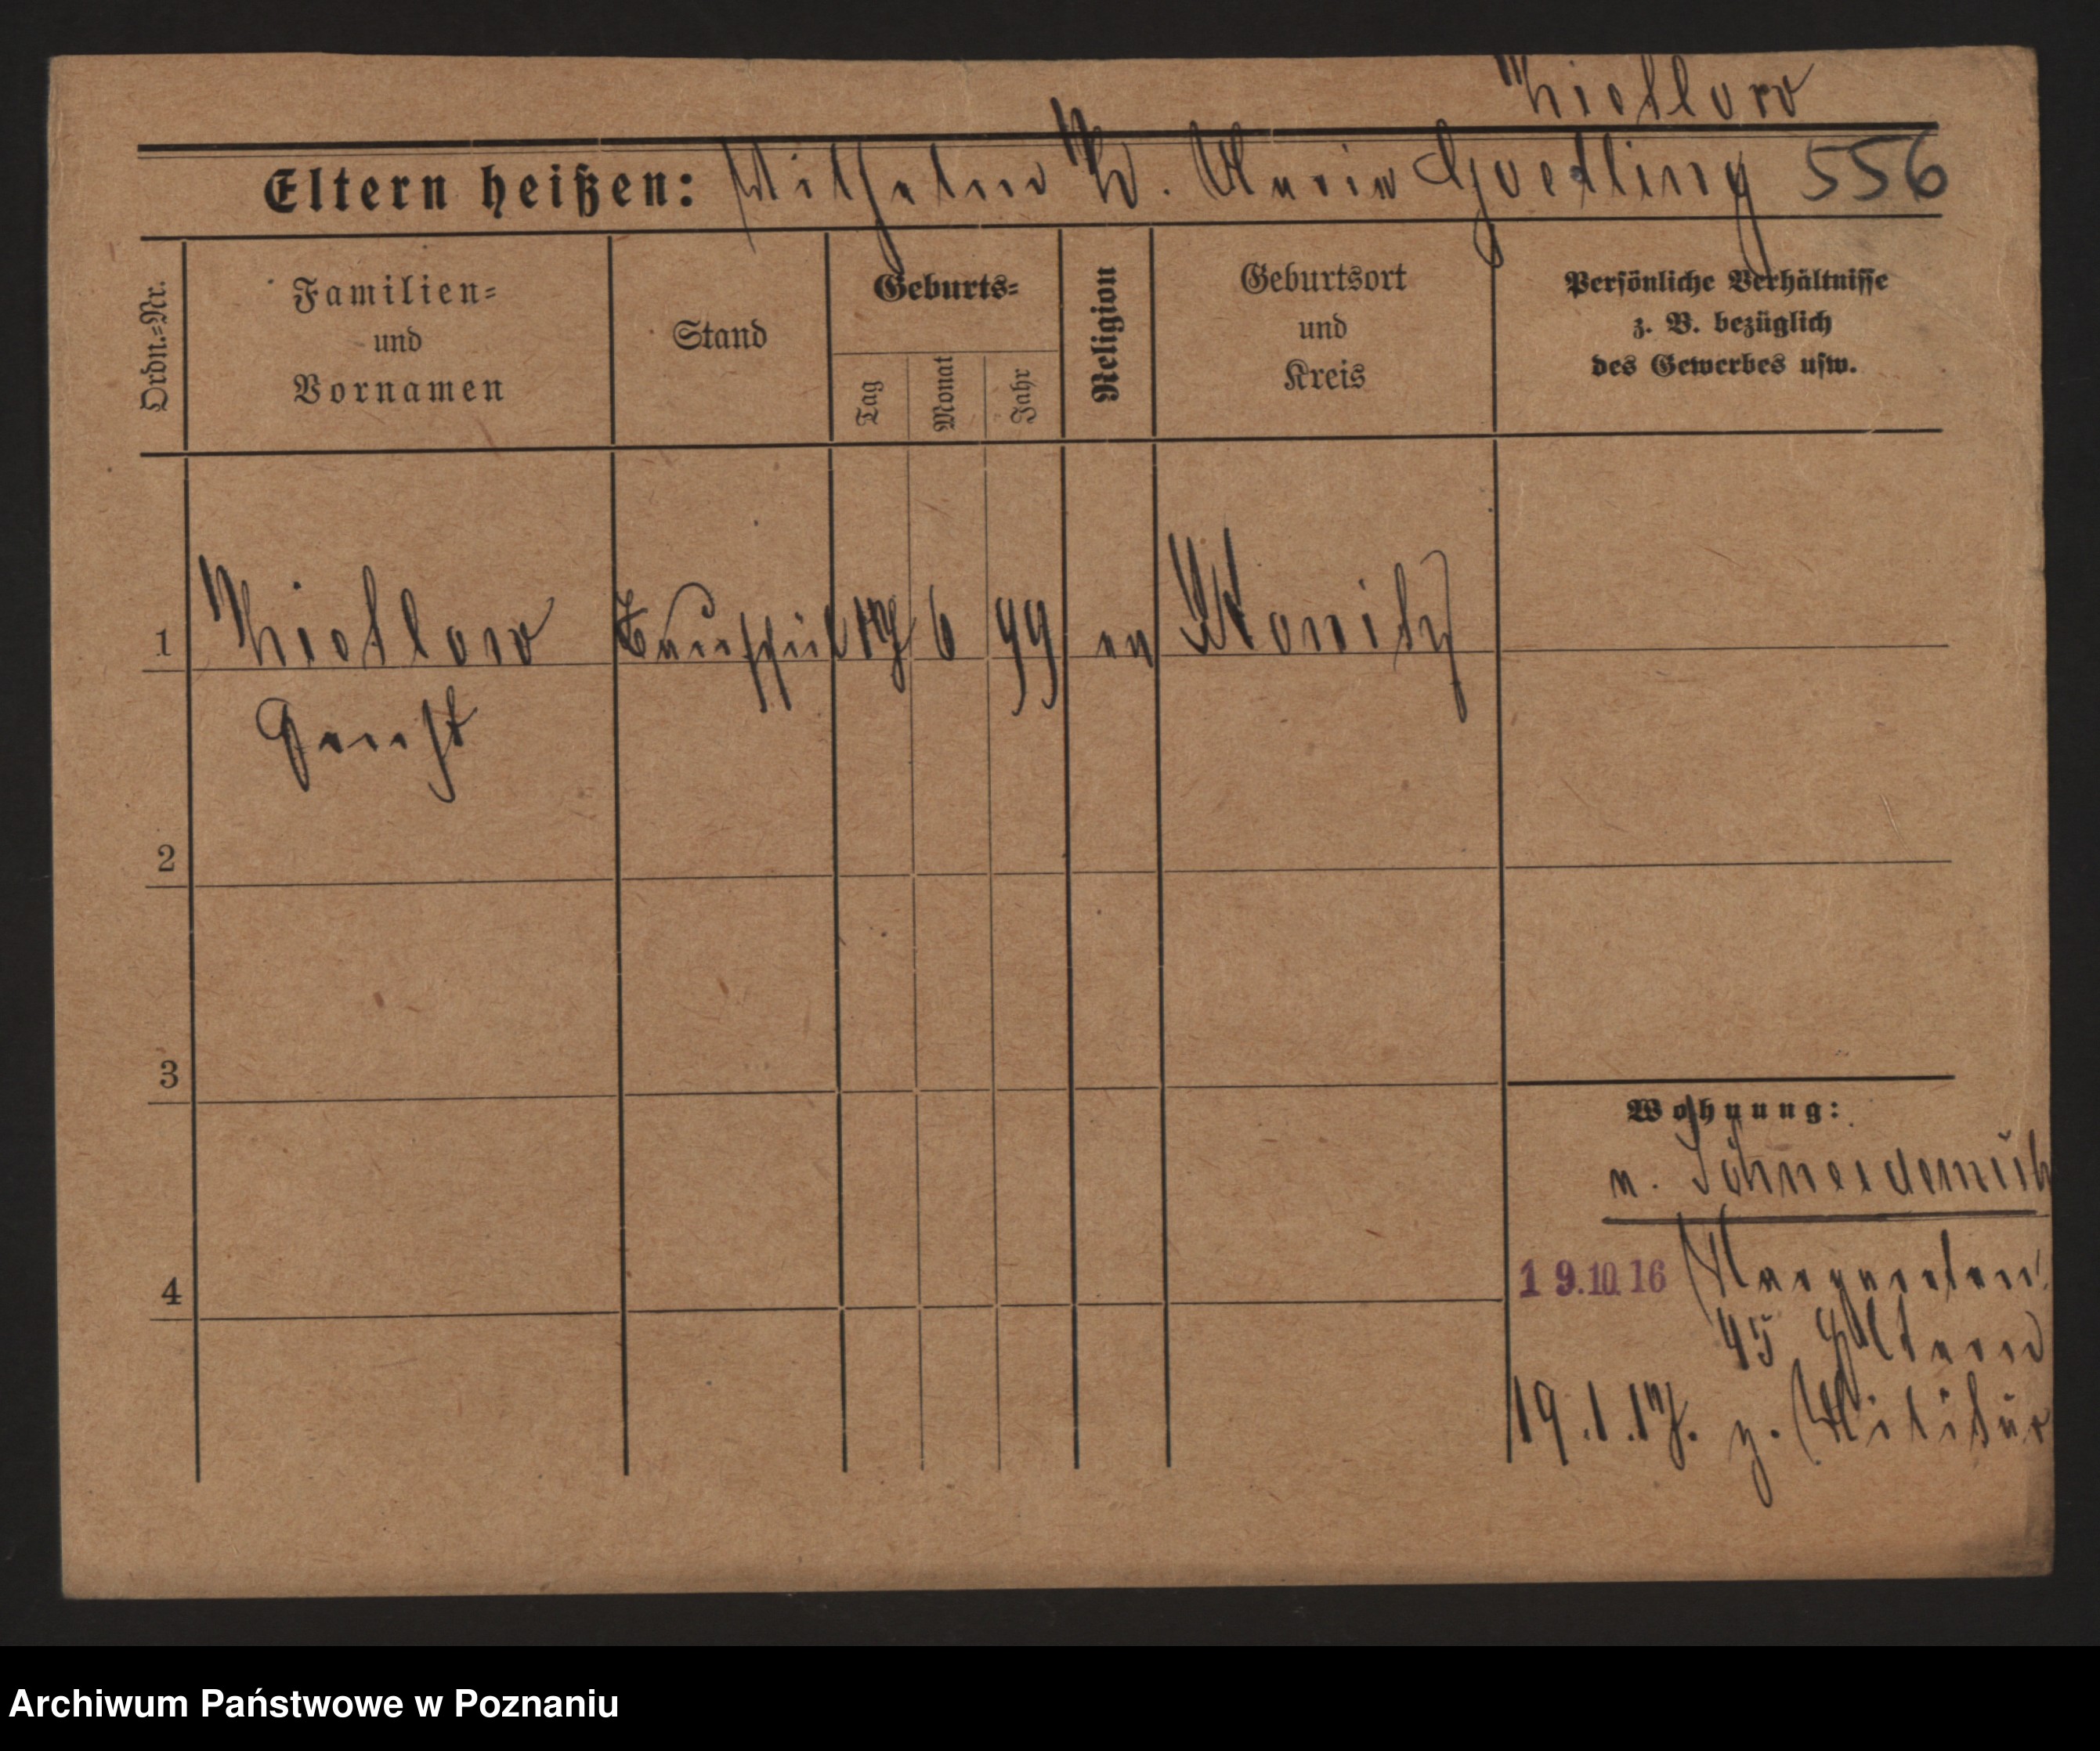 Kieslow
Eltern heißen: Wilhelm K. Marie Goetling 556
Ordn.=Nr.
Familien=
und
Vornamen
Stand
Geburts=
Tag
Monat
Jahr
Religion
Geburtsort
und
Kreis
Persönliche Verhältnisse
z. B. bezüglich
des Gewerbes usw.
1 17 6 99 ev Konitz
Ernst
2
3
Wohnung:
n. Schneidemüh
4
19.10.16 Margareten
45 Eltern
19.1.17. z. Militär
Archiwum Państwowe w Poznaniu